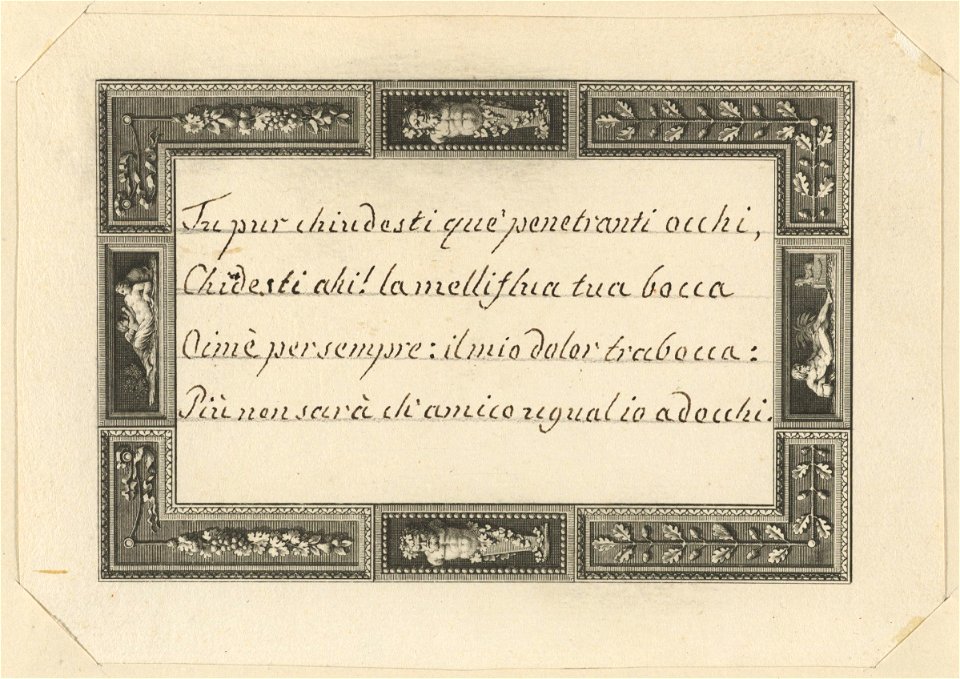 Tu pur chiudesti que' penetranti occhi,
Chiudesti ahi! la melliflua tua bocca
Oimè per sempre: il mio dolor trabocca:
Più non sarà ch'amico ugual io adocchi.